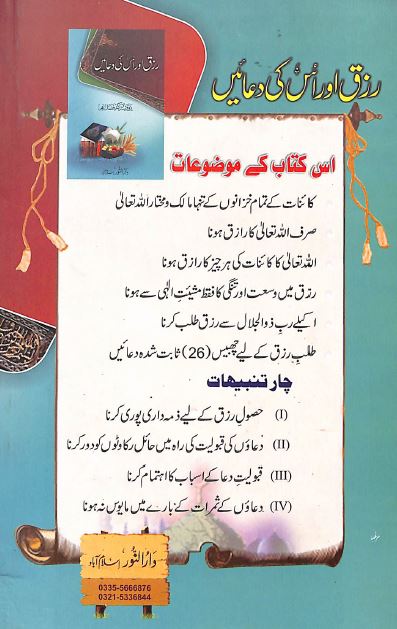 رزق اور اُس کی دعائیں
رزق اور اُس کی دعائیں
اس کتاب کے موضوعات
کائنات کے تمام خزانوں کے تنہا مالک و مختار اللہ تعالیٰ
صرف اللہ تعالیٰ کا رازق ہونا
اللہ تعالیٰ کا کائنات کی ہر چیز کا رازق ہونا
رزق میں وسعت اور تنگی کا فقط مشیئتِ الٰہی سے ہونا
اکیلے ربِ ذوالجلال سے رزق طلب کرنا
طلبِ رزق کے لیے چھبیس (26) ثابت شدہ دعائیں
چار تنبیہات
(I) حصولِ رزق کے لیے ذمہ داری پوری کرنا
(II) دعاؤں کی قبولیت کی راہ میں حائل رکاوٹوں کو دور کرنا
(III) قبولیتِ دعا کے اسباب کا اہتمام کرنا
(IV) دعاؤں کے ثمرات کے بارے میں مایوس نہ ہونا
دَارُالنُّور اسلام آباد
0335-5666876
0321-5336844